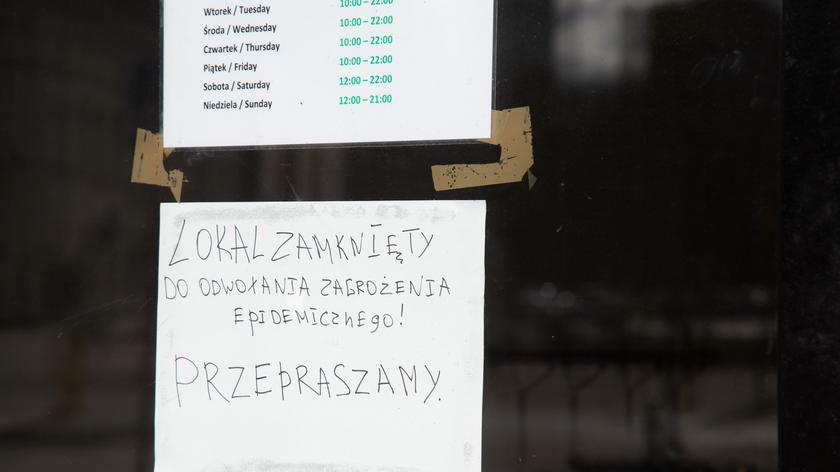 Wtorek / Tuesday 10:00 – 22:00
Środa / Wednesday 10:00 – 22:00
Czwartek / Thursday 10:00 – 22:00
Piątek / Friday 10:00 – 22:00
Sobota / Saturday 12:00 – 22:00
Niedziela / Sunday 12:00 – 21:00
LOKAL ZAMKNIĘTY
DO ODWOŁANIA ZAGROŻENIA
EpIDEMICZnEgo!
PRZEPRASZAMY.